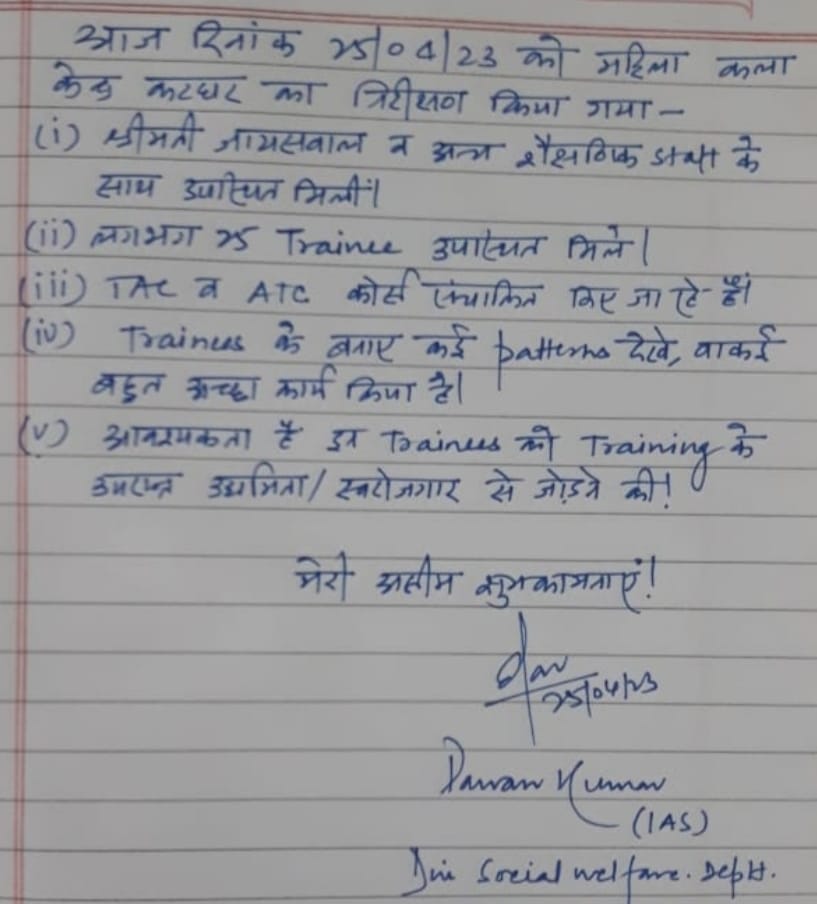 आज दिनांक 25/04/23 को महिला कला
केन्द्र कटघर का निरीक्षण किया गया –
(i) श्रीमती जायसवाल व अन्य शैक्षणिक staff के
साथ उपस्थित मिलीं।
(ii) लगभग 25 Trainee उपस्थित मिले।
(iii) TAC व ATC कोर्स संचालित किए जा रहे हैं।
(iv) Trainees के बनाए कई patterns देखे, वाकई
बहुत अच्छा कार्य किया है।
(v) आवश्यकता है इन Trainees को Training के
उपरान्त उद्यमिता/स्वरोजगार से जोड़ने की!
मेरी असीम शुभकामनाएं!
25/04/23
Pawan Kumar
(IAS)
Social welfare. Deptt.